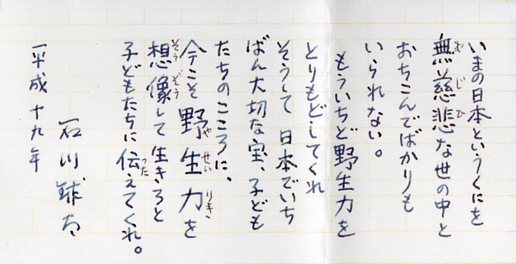 いまの日本というくにを
無慈悲な世の中と
おちこんでばかりも
いられない。
もういちど野生力を
とりもどしてくれ
そうして 日本でいち
ばん大切な宝、子ども
たちのこころに、
今こそ野生力を
想像して生きろと
子どもたちに伝えてくれ。
石川球太
平成十九年